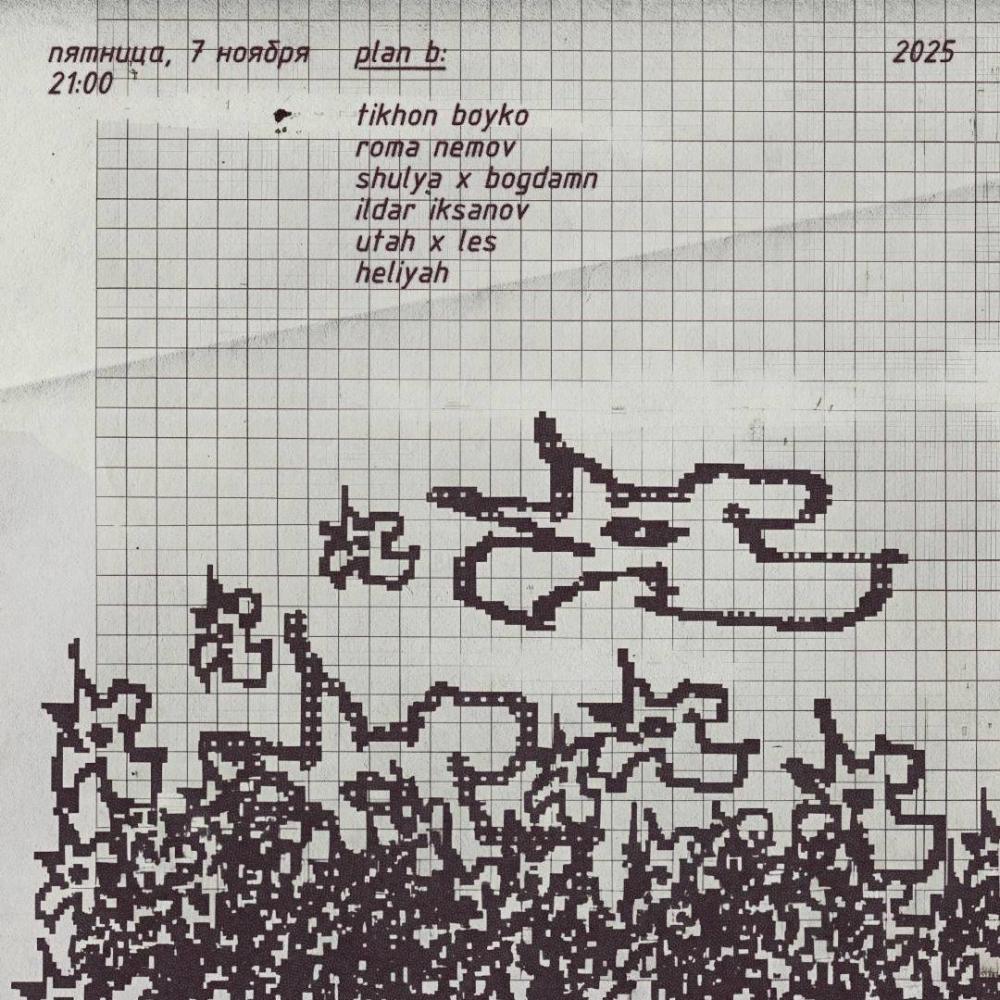 пятница, 7 ноября
21:00
plan b:
tikhon boyko
roma nemov
shulya x bogdamn
ildar iksanov
utah x les
heliyah
2025